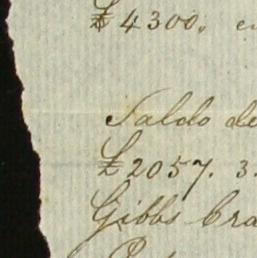 £ 4300. e
Saldo de
£ 2057. 3.
Gibbs Cra